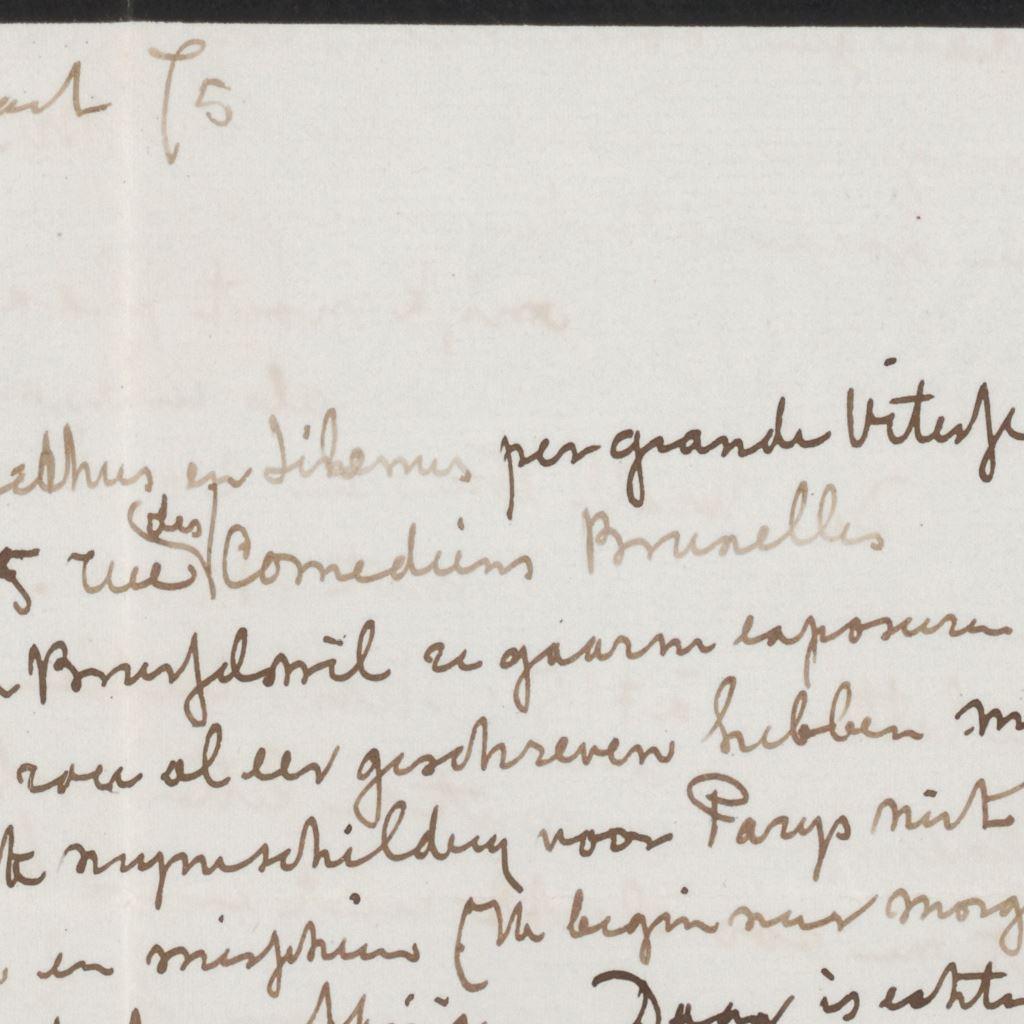 75
en Silenus per grande Vitesse
5 rue des Comediens Bruxelles
Brussel wil ze gaarne exposeren
zou al eer geschreven hebben
mijn schilderij voor Parijs niet
en misschien (Ik begin nu morg
Daar is echter